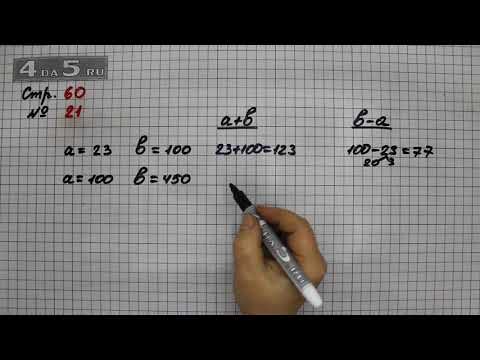 4 DA 5.RU
Стр. 60
№ 21
a+b
b-a
a = 23 b = 100 23+100=123 100-23=77
20 3
a = 100 b = 450